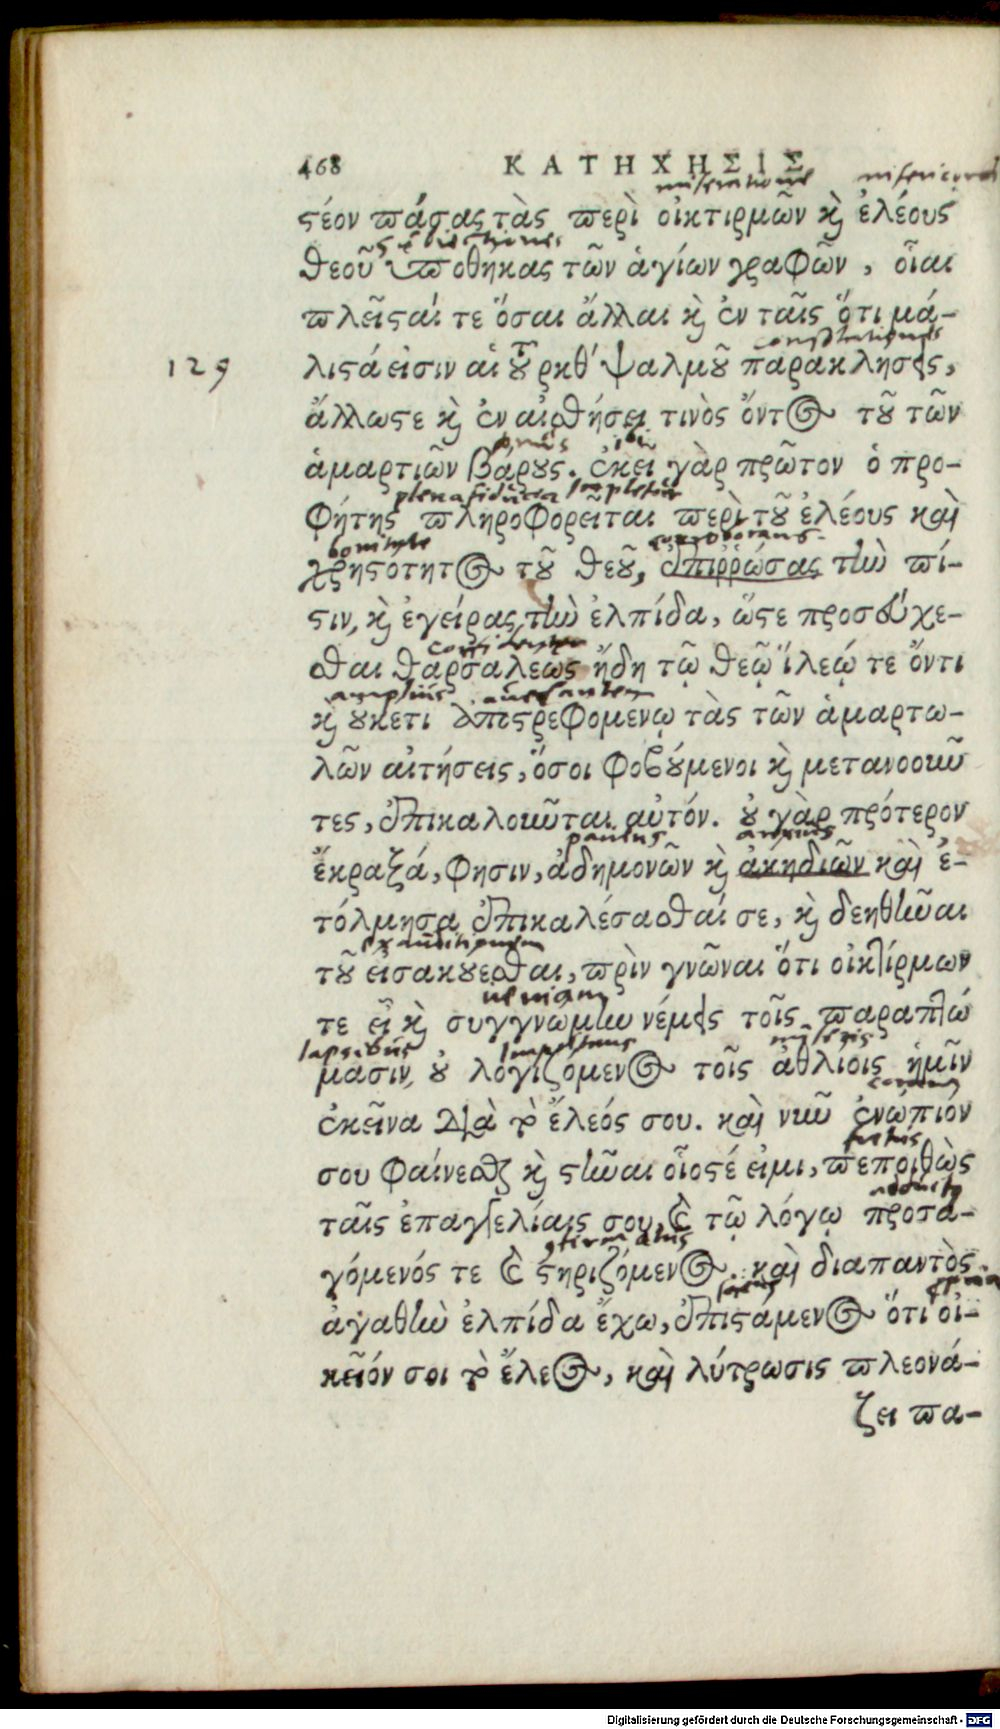 468 ΚΑΤΗΧΗΣΙΣ
miseratione
στέον πάσας τὰς περὶ οἰκτιρμῶν κ̀ ἐλέους
θεοῦ ὑποθηκας τῶν ἁγίων γραφῶν, οἷαι
πλεῖσαί τε ὅσαι ἄλλαι κ̀ ἐν ταῖς ὅτι μά-
129
λιστά εἰσιν αἱ τοῦ ρκθ´ ψαλμοῦ παρακλησεις,
ἄλλωστε κ̀ ἐν αἰσθήσει τινὸς ὄντος τοῦ τῶν
ἁμαρτιῶν βάρους. ἐκεῖ γὰρ πρῶτον ὁ προ-
plena fiducia impletur
φήτης πληροφορεῖται περὶ τοῦ ἐλέους καὶ
corroborans
χρηστοτητος τοῦ θεοῦ, ἐπιῤῥώσας τὴν πί-
στιν, κ̀ ἐγείρας τὴν ἐλπίδα, ὥστε προσεύχε-
σθαι θαρσαλεως ἤδη τῷ θεῷ ἵλεῴ τε ὄντι
amplius auersantem
κ̀ ουκετι ἀποστρεφομενῳ τὰς τῶν ἁμαρτω-
λῶν αἰτήσεις, ὅσοι φοβούμενοι κ̀ μετανοοῦν
τες, ἐπικαλοῦνται αὐτόν. οὐ γὰρ πρότερον
pauens anxius
ἔκραξά, φησιν, ἀδημονῶν κ̀ ἀκηδιῶν καὶ ἐ-
τόλμησα ἐπικαλέσασθαί σε, κ̀ δεηθῆναι
τοῦ εἰσακουεσθαι, πρὶν γνῶναι ὅτι οἰκτίρμων
ueniam
τε εἶ κ̀ συγγνώμην νέμεις τοῖς παραπτώ
lapsibus imputans miseris
μασιν, οὐ λογιζόμενος τοῖς ἀθλίοις ἡμῖν
coram
ἐκεῖνα διὰ τὸ ἔλεός σου. καὶ νῦν ἐνώπιόν
σου φαίνεσθαι κ̀ στῆναι οἷος τέ εἰμι, πεποιθὼς
ταῖς ἐπαγγελίαις σου, καὶ τῷ λόγῳ προσα-
γόμενός τε καὶ στηριζόμενος. καὶ διαπαντὸς
ἀγαθὴν ἐλπίδα ἔχω, ἐπιστάμενος ὅτι οἰ-
κεῖόν σοι τὸ ἔλεος, καὶ λύτρωσις πλεονά-
ζει πα-
Digitalisierung gefördert durch die Deutsche Forschungsgemeinschaft - DFG